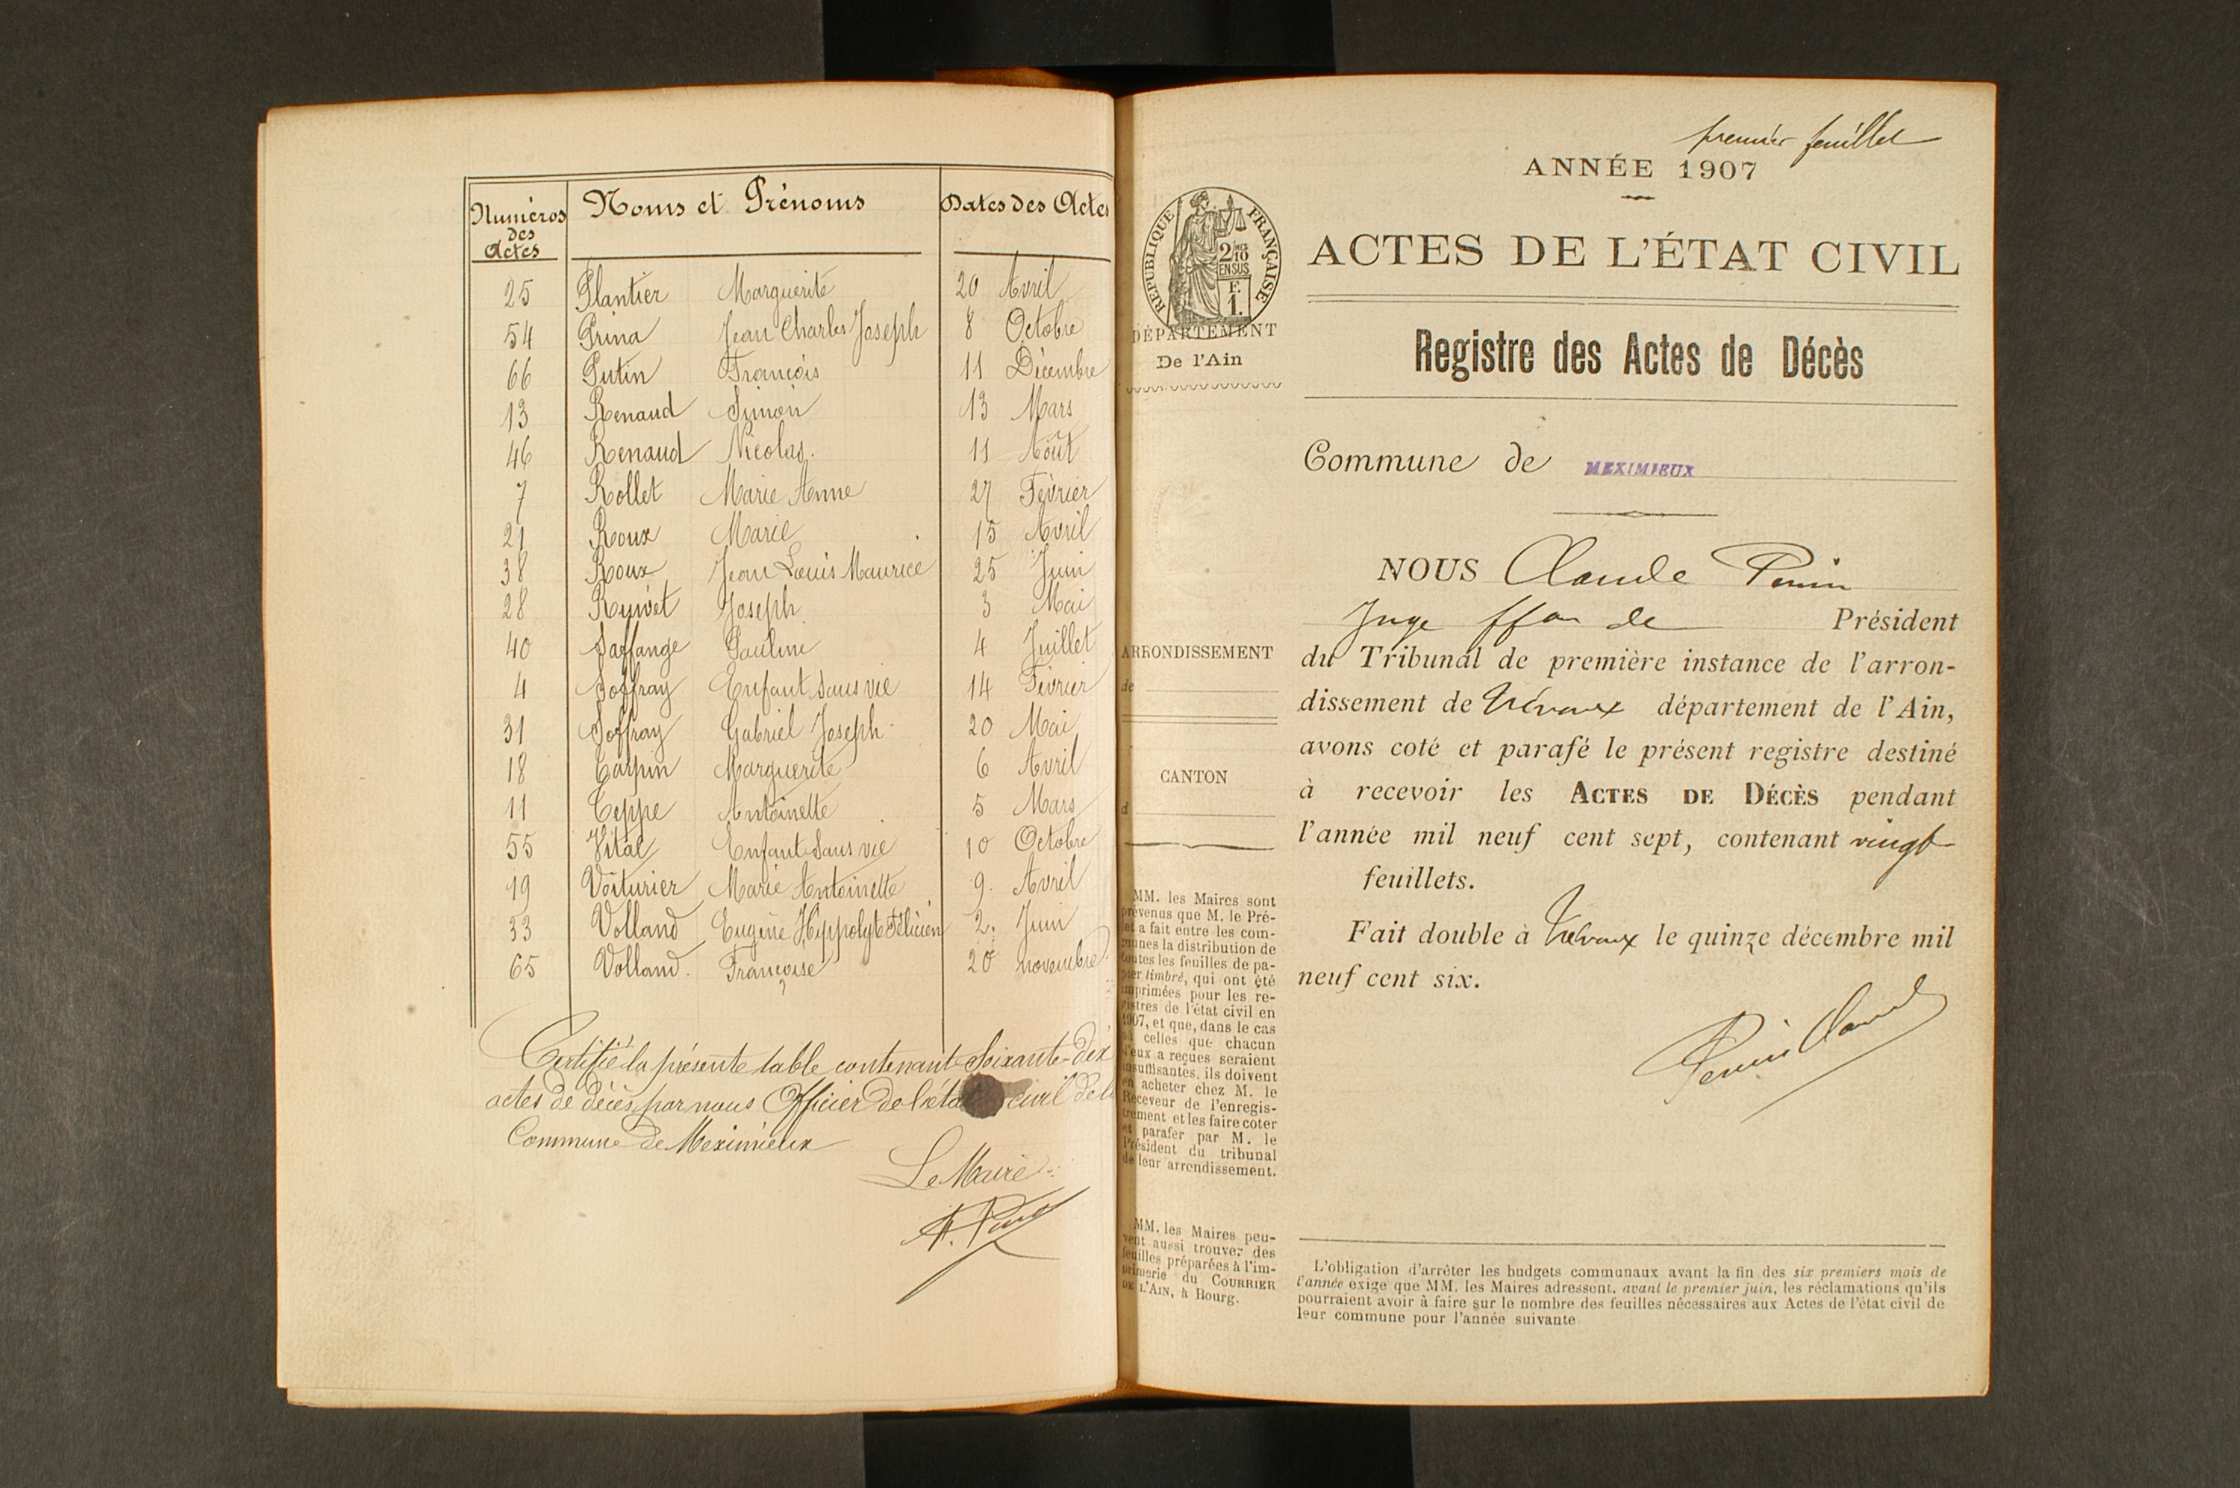 Numéros des Actes Noms et Prénoms Dates des Actes
25 Plantier Marguerite 20 Avril
54 Prina Jean Charles Joseph 8 Octobre
66 Putin François 11 Décembre
13 Renaud Simon 13 Mars
46 Renaud Nicolas. 11 Août
7 Rollet Marie Anne 27 Février
21 Roux Marie 15 Avril
38 Roux Jean Louis Maurice 25 Juin
28 Ruivet Joseph 3 Mai
40 Saffange Pauline 4 Juillet
4 Soffray Enfant sans vie 14 Février
31 Soffray Gabriel Joseph 20 Mai
18 Tarpin Marguerite 6 Avril
11 Teppe Antoinette 5 Mars
55 Vital Enfant sans vie 10 Octobre
19 Voiturier Marie Antoinette 9. Avril
33 Volland Eugène Hippolyte Félicien 2. Juin
65 Volland. Françoise 20 novembre
Certifié la présente table contenant Soixante-dix
actes de décès par nous Officier de l'état civil de la
Commune de Meximieux
Le Maire
premier feuillet
ANNÉE 1907
RÉPUBLIQUE FRANÇAISE
2/10
EN SUS
F.
1.
DÉPARTEMENT
De l'Ain
ACTES DE L'ÉTAT CIVIL
Registre des Actes de Décès
Commune de MEXIMIEUX
NOUS Claude Perrin
Juge ffon de Président
du Tribunal de première instance de l'arron-
dissement de Trévoux département de l'Ain,
avons coté et parafé le présent registre destiné
à recevoir les ACTES DE DÉCÈS pendant
l'année mil neuf cent sept, contenant vingt
feuillets.
Fait double à Trévoux le quinze décembre mil
neuf cent six.
Perrin Claude
ARRONDISSEMENT
de
CANTON
d
MM. les Maires sont
prévenus que M. le Pré-
fet a fait entre les com-
munes la distribution de
toutes les feuilles de pa-
pier timbré, qui ont été
imprimées pour les re-
gistres de l'état civil en
1907, et que, dans le cas
où celles que chacun
d'eux a reçues seraient
insuffisantes, ils doivent
en acheter chez M. le
Receveur de l'enregis-
trement et les faire coter
et parafer par M. le
Président du tribunal
de leur arrondissement.
MM. les Maires peu-
vent aussi trouver des
feuilles préparées à l'im-
primerie du COURRIER
DE L'AIN, à Bourg.
L'obligation d'arrêter les budgets communaux avant la fin des six premiers mois de
l'année exige que MM. les Maires adressent, avant le premier juin, les réclamations qu'ils
pourraient avoir à faire sur le nombre des feuilles nécessaires aux Actes de l'état civil de
leur commune pour l'année suivante